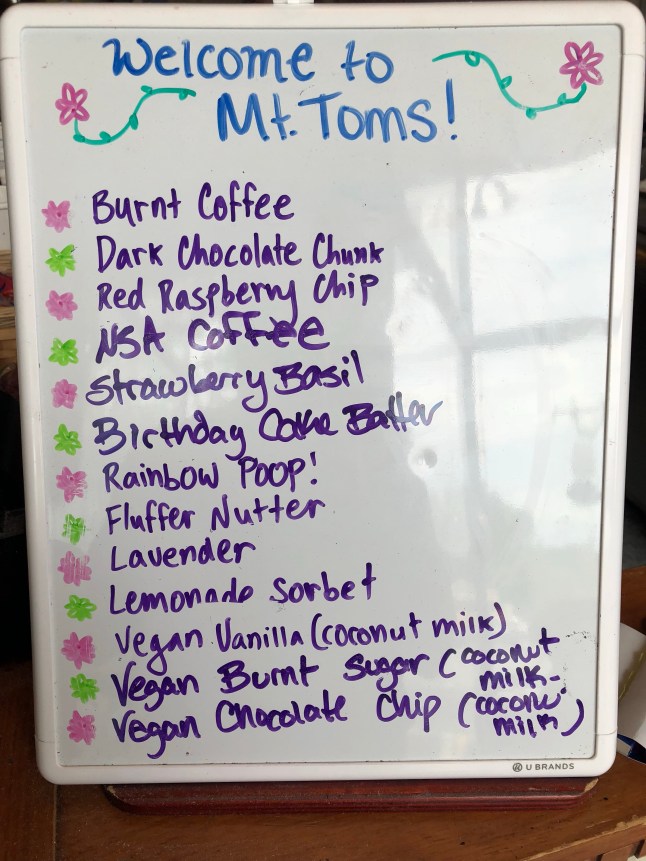 Welcome to
Mt. Toms!
Burnt Coffee
Dark Chocolate Chunk
Red Raspberry Chip
NSA Coffee
Strawberry Basil
Birthday Cake Batter
Rainbow Poop!
Fluffer Nutter
Lavender
Lemonade Sorbet
Vegan Vanilla (coconut milk)
Vegan Burnt Sugar (coconut
milk-
Vegan Chocolate Chip (coconut
milk)
U BRANDS